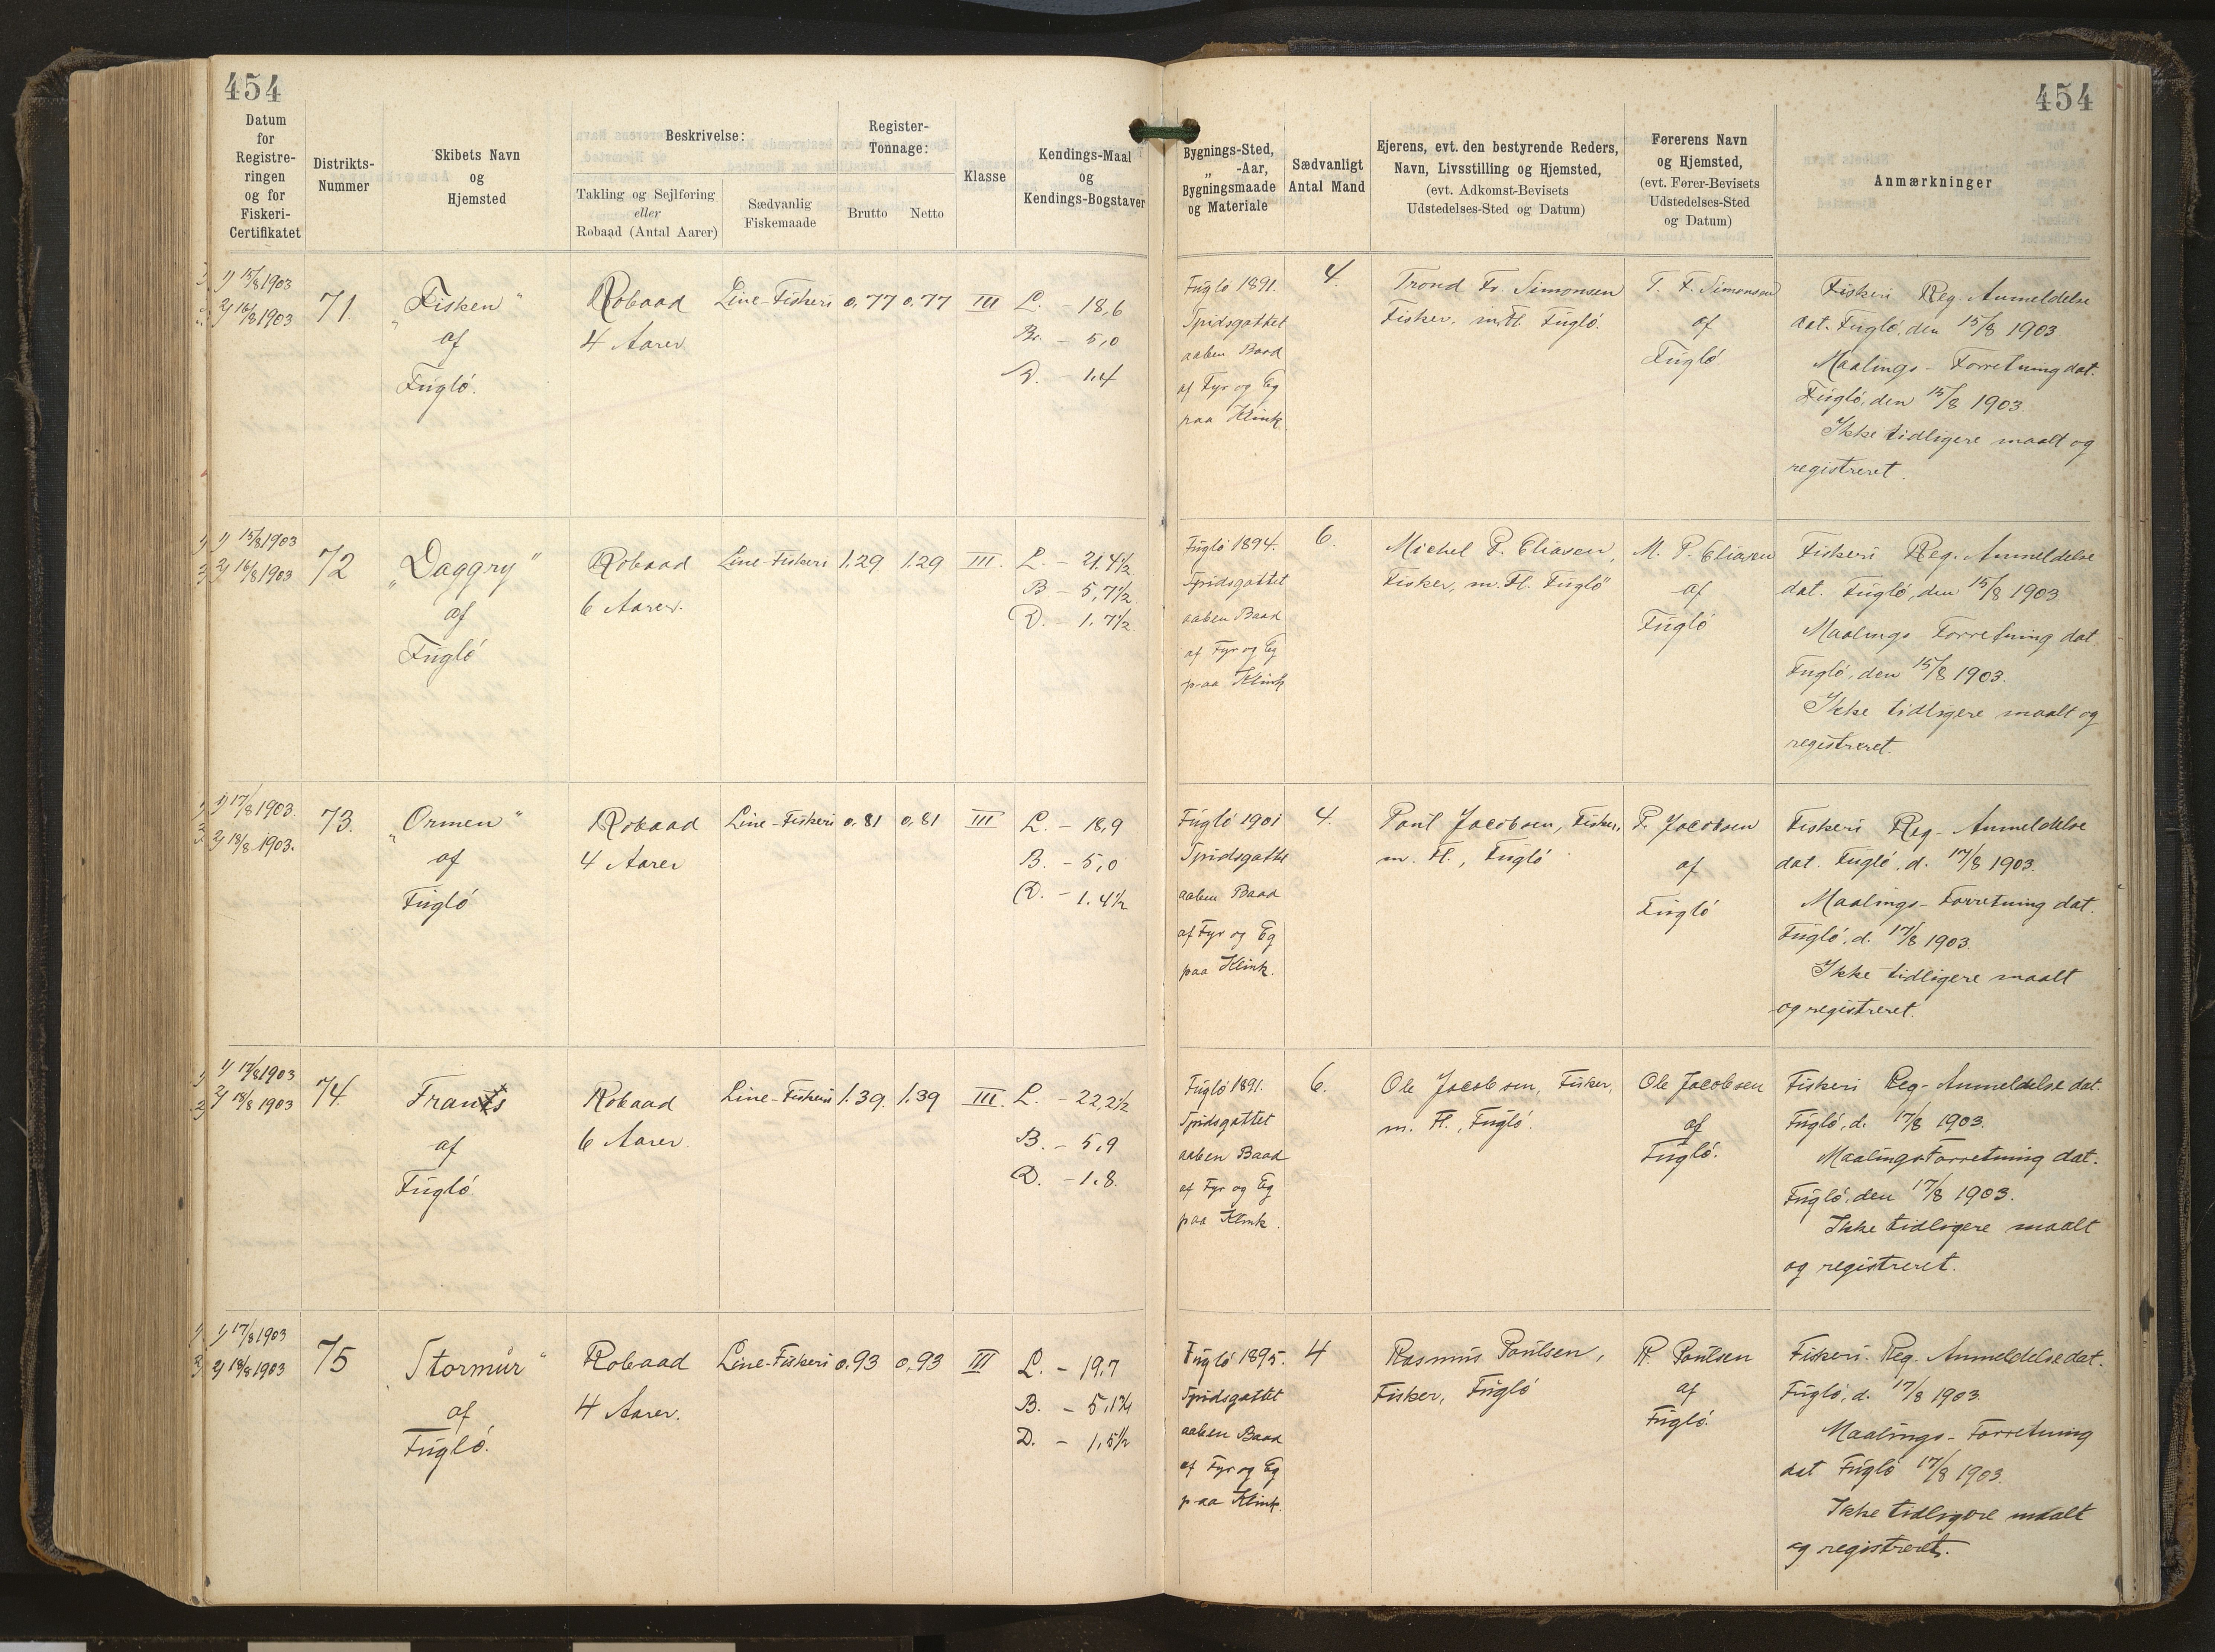 454
454
Datum for Registreringen og for Fiskeri-Certifikatet
Distrikts-Nummer
Skibets Navn og Hjemsted
Beskrivelse:
Takling og Sejlføring eller Robaad (Antal Aarer)
Sædvanlig Fiskemaade
Register-Tonnage:
Brutto
Netto
Klasse
Kendings-Maal og Kendings-Bogstaver
Bygnings-Sted, „ -Aar, Bygningsmaade og Materiale
Sædvanligt Antal Mand
Ejerens, evt. den bestyrende Reders, Navn, Livsstilling og Hjemsted, (evt. Adkomst-Bevisets Udstedelses-Sted og Datum)
Førerens Navn og Hjemsted, (evt. Fører-Bevisets Udstedelses-Sted og Datum)
Anmærkninger
1) 15/8 1903
2) 16/8 1903
71.
„Fisken"
af
Fugló.
Robaad
4 Aarer
Line-Fiskeri
0,77
0,77
III
L. - 18,6
Br. - 5,0
D. - 1,4
Fugló 1891.
Spidsgattet
aaben Baad
af Fyr og Eg
paa Klink.
4.
Trond Fr. Simonsen
Fisker, m. Fl. Fugló.
T. F. Simonsen
af
Fugló
Fiskeri Reg. Anmeldelse
dat. Fugló, den 15/8 1903
Maalings-Forretning dat.
Fugló, den 15/8 1903.
Ikke tidligere maalt og
registreret.
1) 15/8 1903
2) 16/8 1903
72
„Daggry"
af
Fugló
Robaad
6 Aarer.
Line-Fiskeri
1.29
1.29
III.
L. - 21.4½
B - 5,7½
D. - 1.7½
Fugló 1894.
Spidsgattet
aaben Baad
af Fyr og Eg
paa Klink
6.
Michel P. Eliasen,
Fisker, m. Fl. Fugló
M. P. Eliasen
af
Fugló
Fiskeri Reg. Anmeldelse
dat. Fugló, den 15/8 1903
Maalings Forretning dat
Fugló, den 15/8 1903.
Ikke tidligere maalt og
registreret.
1) 17/8 1903.
2) 18/8 1903.
73.
„Ormen"
af
Fugló
Robaad
4 Aarer
Line-Fiskeri
0,81
0,81
III
L. - 18,9
B. - 5,0
D. - 1.4½
Fugló 1901
Spidsgattet
aaben Baad
af Fyr og Eg
paa Klink.
4.
Poul Jacobsen, Fisker,
m. Fl., Fugló
P. Jacobsen
af
Fugló
Fiskeri Reg- Anmeldelse
dat. Fugló, d. 17/8 1903.
Maalings-Forretning dat.
Fugló, d. 17/8 1903.
Ikke tidligere maalt
og registreret.
1) 17/8 1903
2) 18/8 1903
74.
Frants
af
Fugló
Robaad
6 Aarer
Line-Fiskeri
1.39.
1.39
III.
L. - 22,2½
B. - 5,9
D. - 1.8.
Fugló 1891.
Spidsgattet
aaben Baad
af Fyr og Eg
paa Klink.
6.
Ole Jacobsen, Fisker,
m. Fl., Fugló.
Ole Jacobsen
af
Fugló.
Fiskeri Reg-Anmeldelse dat.
Fugló, d. 17/8 1903.
MaalingsForretning dat.
Fugló, den 17/8 1903.
Ikke tidligere maalt
og registreret.
1) 17/8 1903
2) 18/8 1903
75
„Stormur"
af
Fugló.
Robaad
4 Aarer.
Line-Fiskeri
0,93
0,93
III
L. - 19,7
B. - 5,1¾
D. - 1,5½
Fugló 1895.
Spidsgattet
aaben Baad
af Fyr og Eg
paa Klink.
4
Rasmus Poulsen,
Fisker, Fugló
R. Poulsen
af
Fugló.
Fiskeri. Reg. Anmeldelse dat.
Fugló, d. 17/8 1903.
Maalings-Forretning
dat Fugló 17/8 1903.
Ikke tidligere maalt
og registreret.